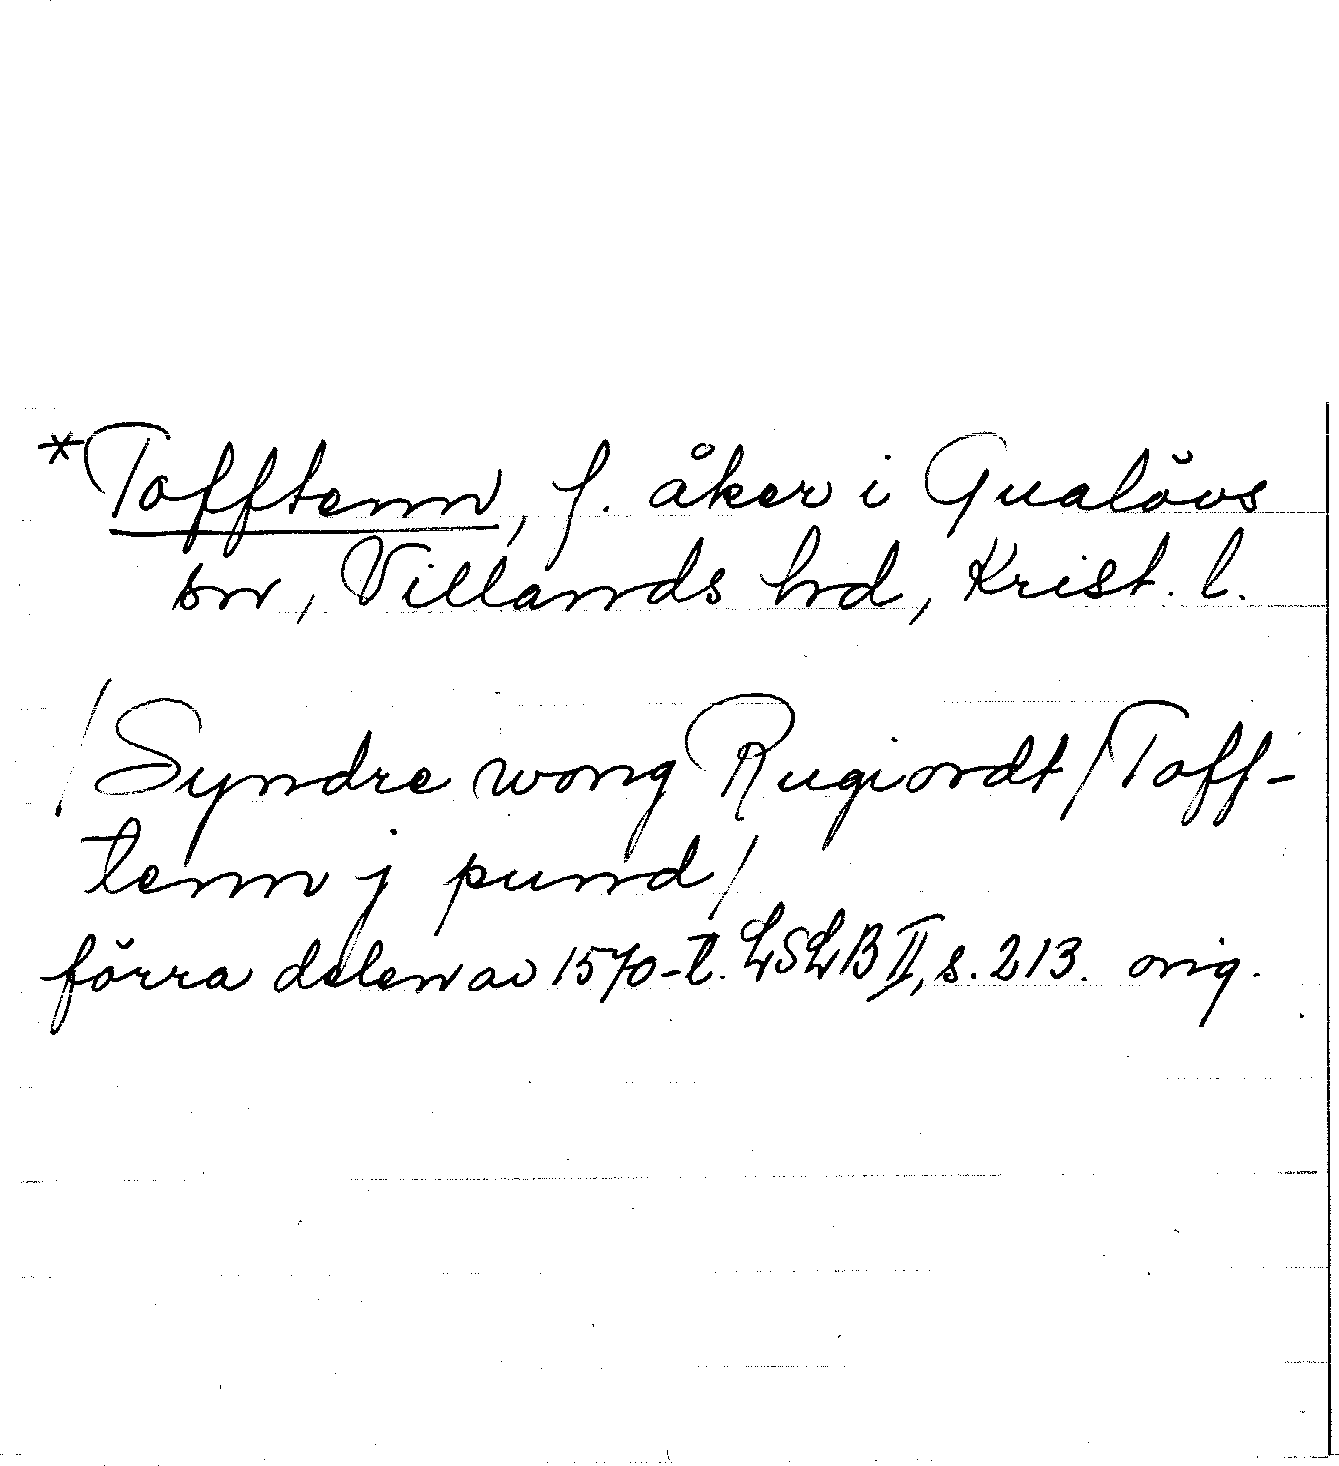 *Tofftenn, f. åker i Gualövs
sn, Villands hd, Krist. l.
/Syndre wong Rugiordt/Toff-
tenn j pund/
förra delen av 1570-t. LSLB II, s. 213. orig.